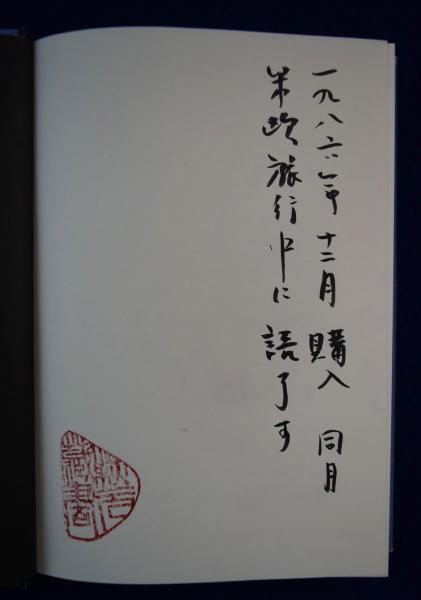 一九八六年十二月 購入 同月
米欧旅行中に 読了す
藏書